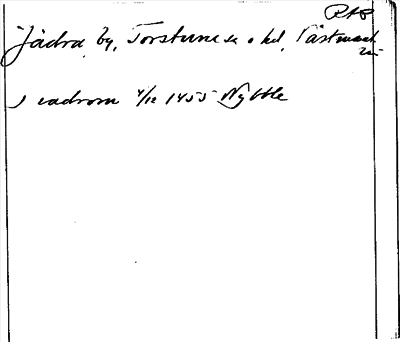 RAP
Jädra by, Torstuna sn o hd, Västmanl
län
J eadrom 4/12 1455 Nybble